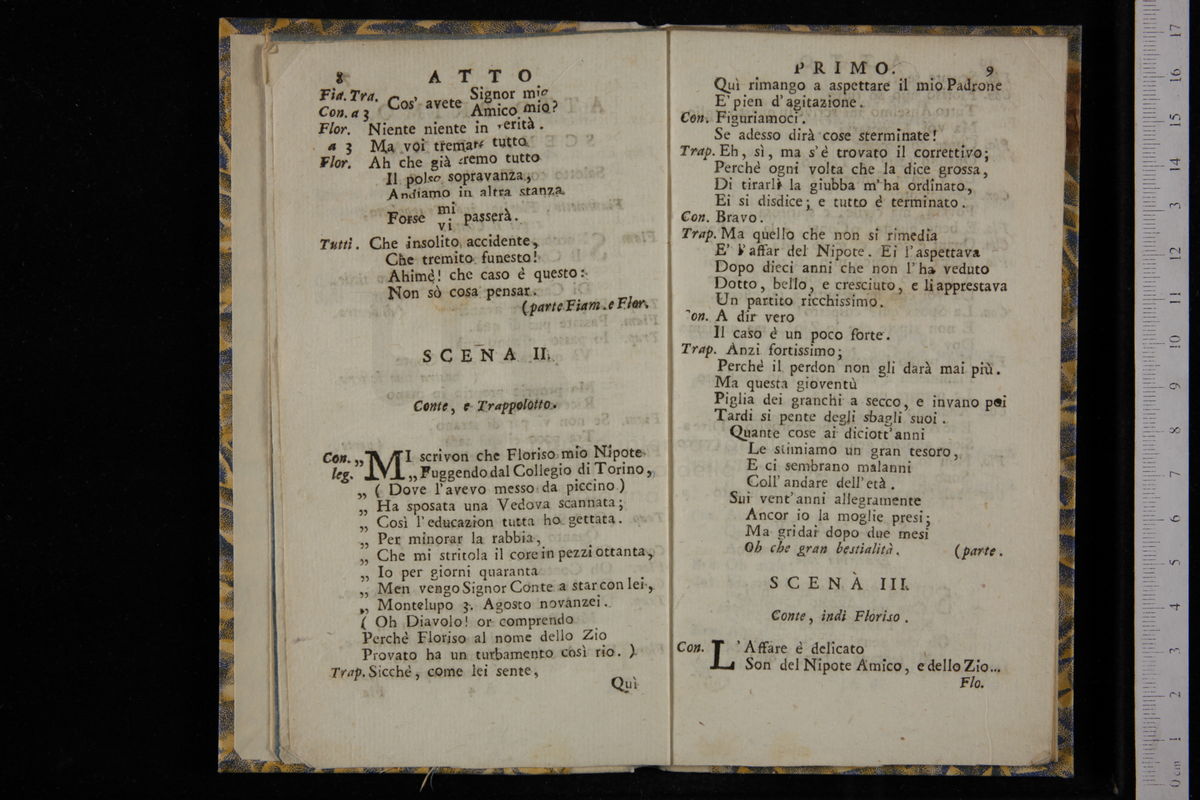 8 ATTO
Fia. Tra. Cos' avete Signor mio
Con. a 3 Amico mio?
Flor. Niente niente in verità.
a 3 Ma voi tremate tutto
Flor. Ah che già tremo tutto
Il polso sopravanza,
Andiamo in altra stanza
Forse mi passerà.
vi
Tutti. Che insolito accidente,
Che tremito funesto!
Ahimè! che caso è questo:
Non sò cosa pensar.
(parte Fiam. e Flor.
SCENA II.
Conte, e Trappolotto.
Con. „ MI scrivon che Floriso mio Nipote
leg. „ Fuggendo dal Collegio di Torino,
„ ( Dove l'avevo messo da piccino )
„ Ha sposata una Vedova scannata;
„ Così l'educazion tutta ho gettata.
„ Per minorar la rabbia,
„ Che mi stritola il core in pezzi ottanta,
„ Io per giorni quaranta
„ Men vengo Signor Conte a star con lei,
„ Montelupo 3. Agosto novanzei.
( Oh Diavolo! or comprendo
Perchè Floriso al nome dello Zio
Provato ha un turbamento così rio. )
Trap. Sicchè, come lei sente,
Quì
PRIMO. 9
Quì rimango a aspettare il mio Padrone
E' pien d'agitazione.
Con. Figuriamoci.
Se adesso dirà cose sterminate!
Trap. Eh, sì, ma s'è trovato il correttivo;
Perchè ogni volta che la dice grossa,
Di tirarli la giubba m'ha ordinato,
Ei si disdice; e tutto è terminato.
Con. Bravo.
Trap. Ma quello che non si rimedia
E' l'affar del Nipote. Ei l'aspettava
Dopo dieci anni che non l'ha veduto
Dotto, bello, e cresciuto, e li apprestava
Un partito ricchissimo.
Con. A dir vero
Il caso è un poco forte.
Trap. Anzi fortissimo;
Perchè il perdon non gli darà mai più.
Ma questa gioventù
Piglia dei granchi a secco, e invano poi
Tardi si pente degli sbagli suoi.
Quante cose ai diciott'anni
Le stimiamo un gran tesoro,
E ci sembrano malanni
Coll'andare dell'età.
Sui vent'anni allegramente
Ancor io la moglie presi;
Ma gridai dopo due mesi
Oh che gran bestialità. (parte.
SCENA III.
Conte, indi Floriso.
Con. L'Affare è delicato
Son del Nipote Amico, e dello Zio...
Flo.
17
16
15
14
13
12
11
10
9
8
7
6
5
4
3
2
1
0 cm